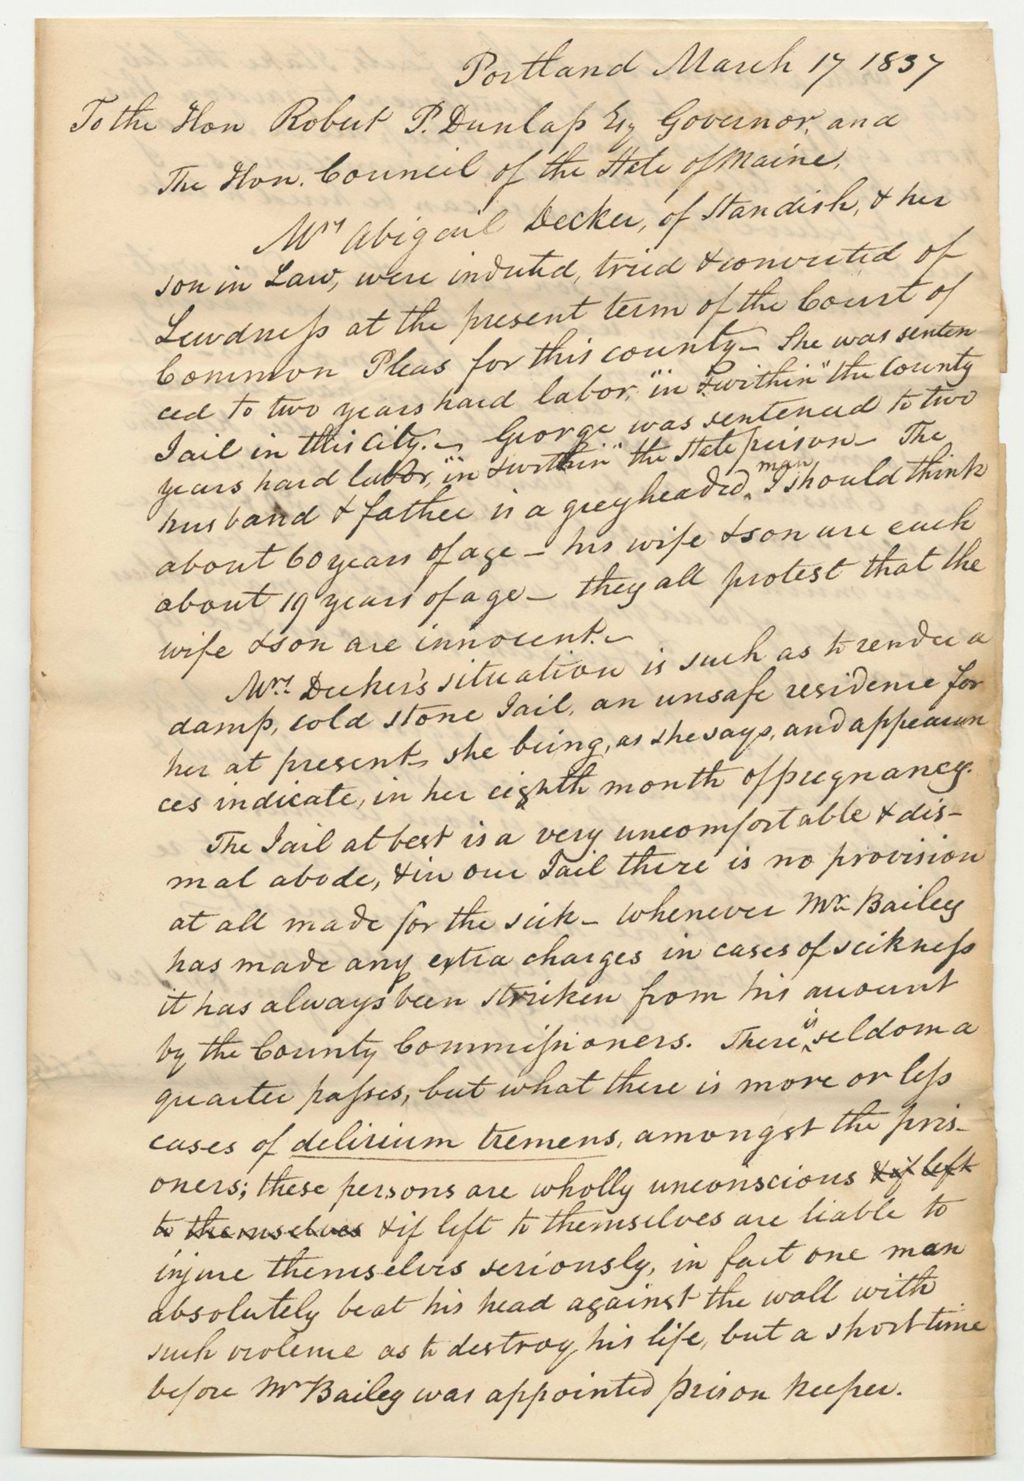 Portland March 17 1837
To the Hon Robert P. Dunlap Esq Governor, and
The Hon. Council of the State of Maine,
Mrs Abigail Decker, of Standish, & her
son in Law, were indicted, tried & convicted of
Lewdness at the present term of the Court of
Common Pleas for this county – She was senten
ced to two years hard labor, "in & within" the County
Jail in this city. – George was sentenced to two
years hard labor, "in & within" the State prison – The
husband & father is a greyheaded man I should think
about 60 years of age – his wife & son are each
about 19 years of age – they all protest that the
wife & son are innocent. –
Mrs. Decker's situation is such as to render a
damp, cold stone Jail, an unsafe residence for
her at present, she being, as she says, and appearan
ces indicate, in her eighth month of pregnancy.
The Jail at best is a very uncomfortable & dis-
mal abode, & in our Jail there is no provision
at all made for the sick – whenever Mr. Bailey
has made any extra charges in cases of scikness
it has always been striken from his account
by the County Commissioners. There is seldom a
quarter passes, but what there is more or less
cases of delirium tremens, amongst the pris-
oners; these persons are wholly unconscious & if left
to themselves & if left to themselves are liable to
injure themselves seriously, in fact one man
absolutely beat his head against the wall with
such violence as to destroy his life, but a short time
before Mr Bailey was appointed prison keeper.